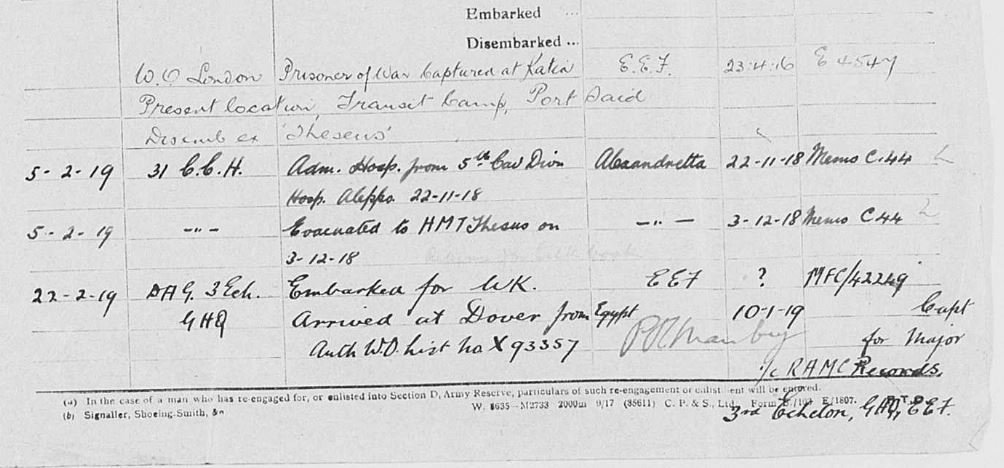 Embarked ...
Disembarked ...
W.O London Prisoner of War Captured at Katia E.E.F. 23.4.16 E 4547
Present location, Transit Camp, Port Said
Disemb ex 'Theseus'
5-2-19 31 C.C.H. Adm. Hosp. from 5th Cav Divn Alexandretta 22-11-18 Memo C.44
Hosp. Aleppo. 22-11-18
5-2-19 -"- Evacuated to HMT Thesus on -"- 3-12-18 Memo C44
3-12-18
22-2-19 DAG. 3 Ech. Embarked for UK. EEF ? MFC/42249
GHQ Arrived at Dover from Egypt 10-1-19 Capt
Auth W.O. List No X 93357 for Major
i/c RAMC Records,
(a) In the case of a man who has re-engaged for, or enlisted into Section D, Army Reserve, particulars of such re-engagement or enlistment will be entered.
(b) Signaller, Shoeing-Smith, &c
W. 8635—M2733 2000m 9/17 (35611) C. P. & S., Ltd. Form E/1807.
3rd Echelon, GHQ, EEF.